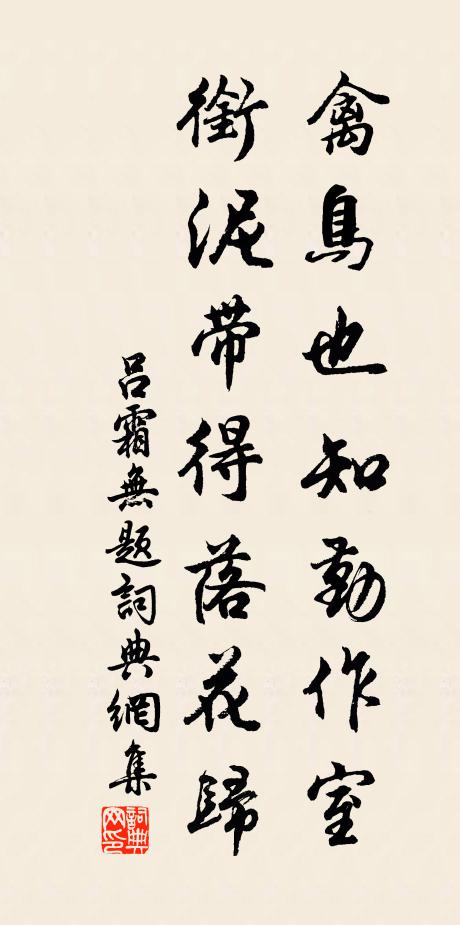 禽鳥也知勤作室
銜泥帶得落花歸
吕霜無題詞典網集
詞典網印